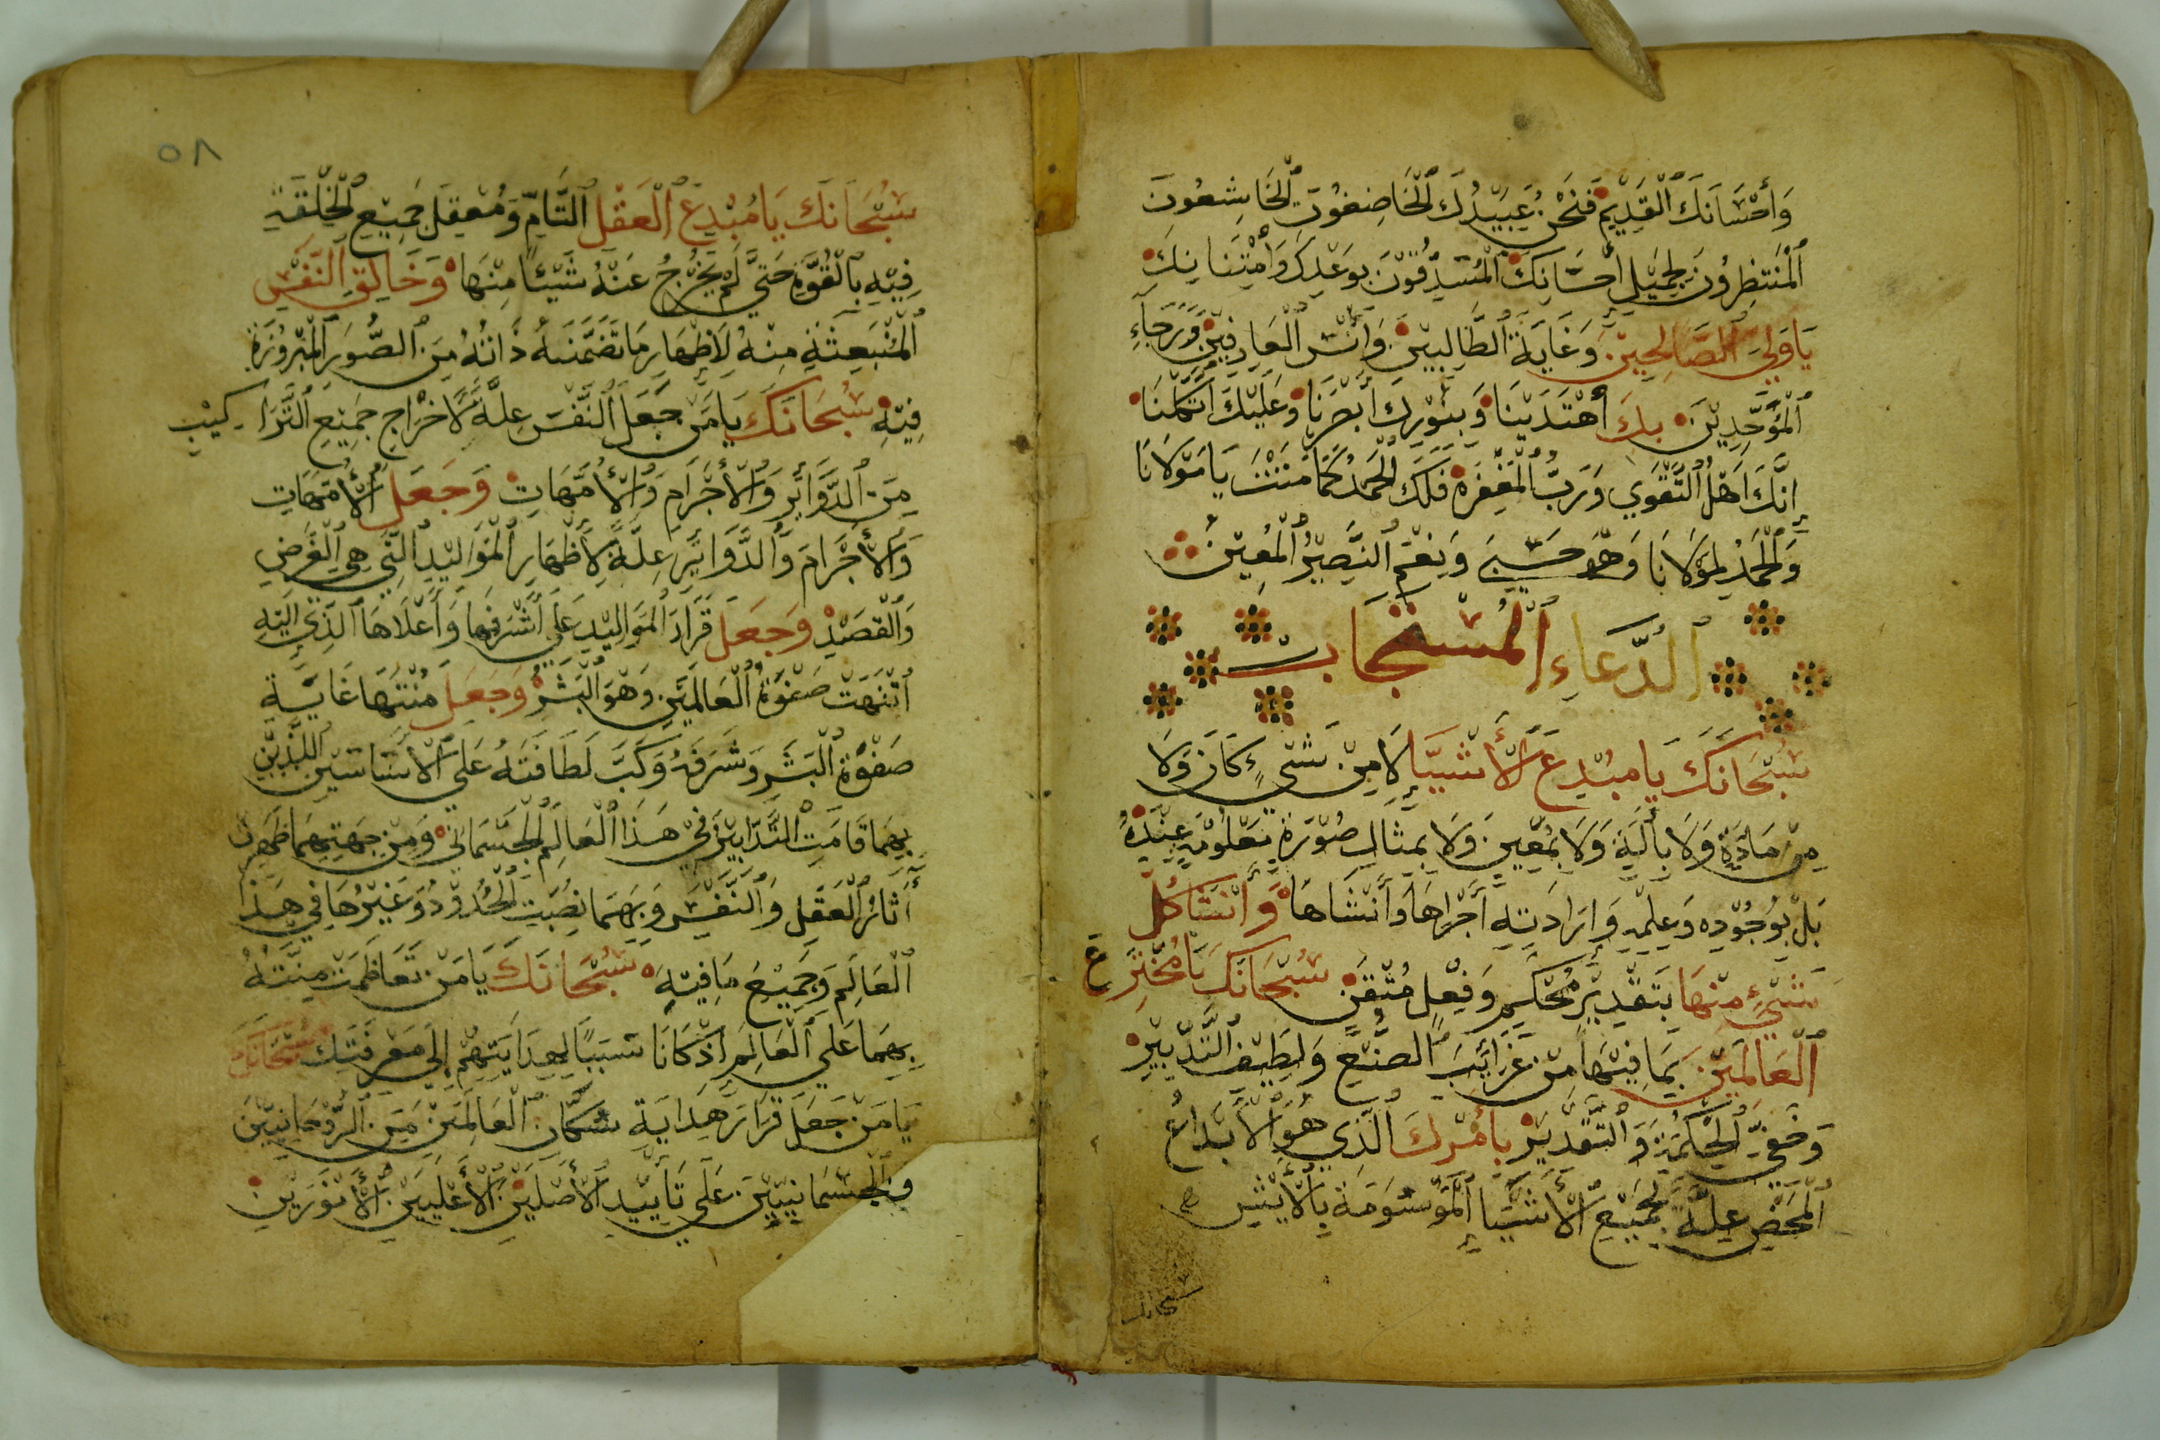 وَأحْسَانَكَ ٱلْقَدِيْمِ فَنَحْنُ عَبِيْدُكَ ٱلْخَاضِعُونَ ٱلْخَاشِعُونَ
ٱلْمُنتَظِرُونَ لِجَمِيْلِ أِحْسَانِكَ ٱلْمُتَصَدِّقُوْنَ بِوَعْدِكَ وَأمْتِنَانِكَ
يَا وَلِيَ ٱلصَّالِحِيْنَ وَغَايَةَ ٱلطَّالِبِيْنَ وَأُنْسَ ٱلْعَارِفِيْنَ وَرَجَآءِ
ٱلْمُوَحِّدِيْنَ بِكَ أهْتَدَيْنَا وَبِنُوْرِكَ أبْصَرْنَا وَعَلَيْكَ اتَّكَلْنَا
إنَّكَ اَهْلُ ٱلتَّقْوَي وَرَبُّ ٱلْمَغْفِرَةِ فَلَكَ ٱلْحَمْدُ كَمَا مَنَنْتَ يَا مَوْلَانَا
وَٱلْحَمْدُ لِمَوْلَانَا وَهُوَ حَسْبِيَ وَنِعْمَ ٱلنَّصِيْرُ ٱلْمُعِيْنُ
ٱلدُّعَاءِ ٱلْمُسْتَجَاب
سُبْحَانَكَ يَا مُبْدِعَ ٱلْأَشْيَآ لَا مِنْ شَيْءٍ كَانَ وَلَا
مِنْ مَادَةٍ وَلَا بِأَلَيةٍ وَلَا بِمُعَيِنٍ وَلَا بِمِثَالِ صُوْرَةٍ مَعْلُوْمَةٍ عِنْدَهُ
بَلْ بِوُجُوْدِه وَعِلْمِهِ وَإرَادَتِهِ أَجْرَاهَا وَأَنْشَاهَا وَأَنْشَا كُلَّ
شَيْءٍ مِنْهَا بِتَقْدِيْرٍ مُحْكَمٍ وَفِعْلٍ مُتْقَنٍ سُبْحَانَكَ يَا مُخْتَرِع
ٱلْعَالَمَيْنِ بِمَا فِيْهَا مِنْ غَرَائِبِ ٱلصَّنْعِ وَلَطِيْفِ ٱلتَّدْبِيْرِ
وَخَفِيِّ ٱلْحِكْمَةِ وَٱلتَّقْدِيْرِ بِأَمْرِكَ ٱلَّذِي هُوَ ٱلْأبْدَاعُ
ٱلْمَحْضِ عِلَّةً لِجَمِيْعِ ٱلْأَشْيَآءِ ٱلْمَوْسُوْمَةِ بِٱلْأَيْسِ
سبحانك
٥٨
سُبْحَانَكَ يَا مُبْدِعَ ٱلْعَقْلِ ٱلتَّامِّ وَمُعْقِلَ جَمِيْعِ ٱلْخِلْقَةِ
فِيْهِ بِٱلْقُوَّةِ حَتَّي لَمْ يَخْرُجُ عَنْهُ شَيْئًا مِنْهَا وَخَالِقِ ٱلنَّفْسِ
ٱلْمُنْبَعِثَةِ مِنْهُ لِإظْهَارِ مَا تَضَمَّنَتهُ ذَاتُهُ مِنَ ٱلصُّوَرِ ٱلْمَبْرُوْزَةِ
فِيْهِ سُبْحَانَكَ يَا مَنْ جَعَلَ ٱلنَّفْسَ عِلَّةً لِأخْرَاجِ جَمِيْعِ ٱلتَّرَاكِيْبِ
مِنَ ٱلدَّوَآيِرِ وَٱلْأَجْرَامِ وَٱلْأُمَّهَاتِ وَجَعَلَ ٱلْأُمَّهَاتِ
وَٱلْأَجْرَامَ وَٱلدَّوَايِرَ عِلَّةً لِأظْهَارِ ٱلْمَوَالِيْدِ ٱلتِّي هِيَ ٱلْغَرَضِ
وَٱلْقَصَدِ وَجَعَلَ قَرَارَ ٱلْمَوَالِيْدِ عَلَي أَشْرَفِهَا وَأَعْلَاهَا ٱلَّذِي إلَيْهِ
ٱنْتَهَت صَفْوَةُ ٱلْعَالَمَيْنِ وَهُوَ ٱلْبَشَرُ وَجَعَلَ مُنْتَهَا غَايَة
صَفْوَةِ ٱلْبَشَرِ وَشَرَفَهُ وَكَبَّ لَطَافَتَهُ عَلَي ٱلْأَسَاسَيْنِ ٱللَّذَيْنِ
بِهِمَا قَامَتِ ٱلتَّدَابِيْرُ فِيْ هَذَا ٱلْعَالَمِ ٱلْجِسْمَانِيّ وَمِنْ جِهَتِهِمَا ظَهَرَتْ
أَثَارُ ٱلْعَقْلِ وَٱلنَّفْسِ وَبِهِمَا نُصِبَتِ ٱلْحُدُوْدُ وَغَيْرُهَا فِي هَذَا
ٱلْعَالَمِ وَجَمِيْعَ مَا فِيْهِ سُبْحَانَكَ يَا مَنْ تَعَاظَمَتْ مِنَّتُهُ
بِهِمَا عَلَي ٱلْعَالَمِ اِذْ كَانَا سَبَبًا لِهِدَايَتِهِمْ إِلَي مَعْرِفَتِكَ سُبْحَانَكَ
يَا مَنْ جَعَلَ قَرَارَ هِدَايَةِ سُكَّانِ ٱلْعَالَمَيْنِ مِنَ ٱلرُّوْحَانِيِّيْنَ
وَٱلْجِسْمَانِيِّيْنَ عَلَي تَايِيْدِ ٱلْأَصْلَيْنِ ٱلْأَعْلَيَيْنِ ٱلْأَنْوَرَيْنِ